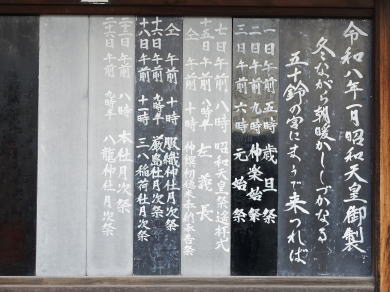 令和八年一月昭和天皇御製
冬ながら朝暖かししづかなる
五十鈴の宮にまうで来つれば
一日午前五時歳旦祭
二日午前九時神楽始祭
三日午前六時元始祭
七日午前八時昭和天皇祭遙拝式
十五日午前八時半左義長
仝午前十時
十六日午前九時半厳島社月次祭
十八日午前十一時三八稲荷社月次祭
二十一日午前八時本社月次祭
二十三日午前九時半八龍神社月次祭